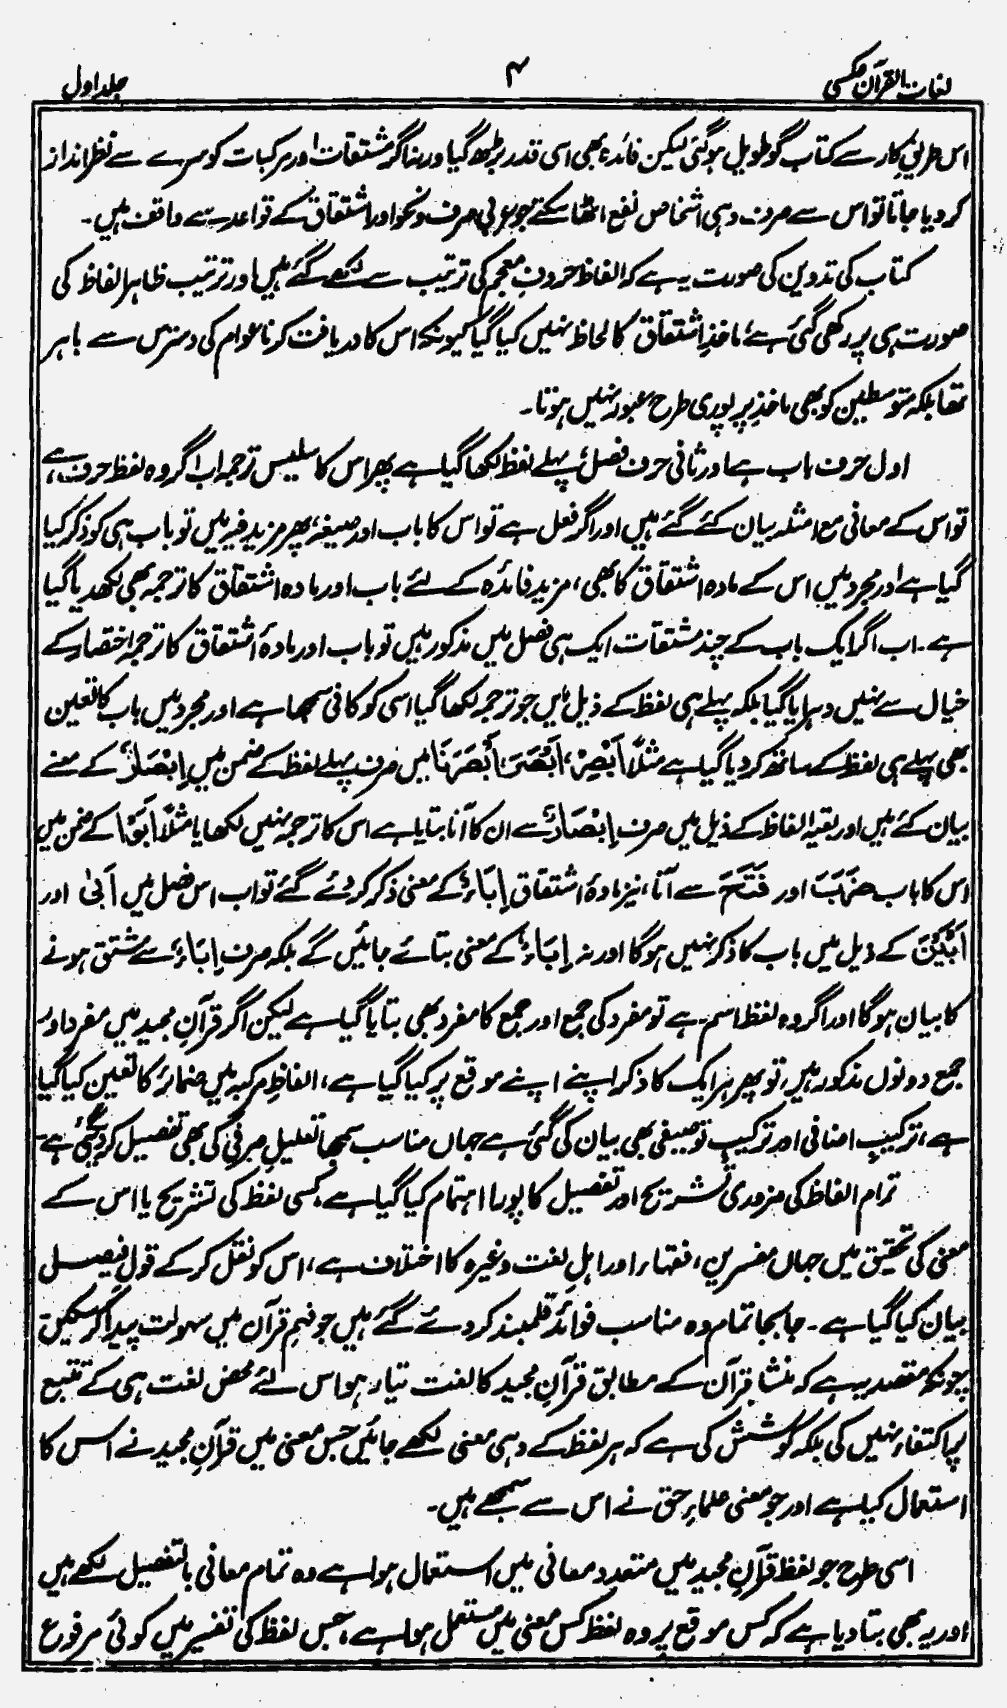 لغات القرآن عکسی
۴
جلد اول
اس طریق کار سے کتاب گو طویل ہوگئی لیکن فائدہ بھی اسی قدر بڑھ گیا ورنہ اگر مشتقات اور مرکبات کو سرے سے نظر انداز
کر دیا جاتا تو اس سے صرف وہی اشخاص نفع اٹھا سکتے جو عربی صرف و نحو اور اشتقاق کے قواعد سے واقف ہیں۔
کتاب کی تدوین کی صورت یہ ہے کہ الفاظ حروفِ معجم کی ترتیب سے لکھے گئے ہیں اور ترتیب ظاہر الفاظ کی
صورت ہی پر رکھی گئی ہے، ماخذِ اشتقاق کا لحاظ نہیں کیا گیا کیونکہ اس کا دریافت کرنا عوام کی دسترس سے باہر
تھا بلکہ متوسطین کو بھی ماخذ پر پوری طرح عبور نہیں ہوتا۔
اول حرف باب ہے اور ثانی حرف فصل، پہلے لفظ لکھا گیا ہے پھر اس کا سلیس ترجمہ اب اگر وہ لفظ حرف ہے،
تو اس کے معانی مع امثلہ بیان کئے گئے ہیں اور اگر فعل ہے تو اس کا باب اور صیغہ، پھر مزید فیہ میں تو باب ہی کو ذکر کیا
گیا ہے اور مجرد میں اس کے مادہ اشتقاق کا بھی، مزید فائدہ کے لئے باب اور مادہ اشتقاق کا ترجمہ بھی لکھدیا گیا
ہے۔ اب اگر ایک باب کے چند مشتقات ایک ہی فصل میں مذکور ہیں تو باب اور مادۂ اشتقاق کا ترجمہ اختصار کے
خیال سے نہیں دہرایا گیا بلکہ پہلے ہی لفظ کے ذیل میں جو ترجمہ لکھا گیا اسی کو کافی سمجھا ہے اور مجرد میں باب کا تعین
بھی پہلے ہی لفظ کے ساتھ کر دیا گیا ہے مثلاً اَبْصِرْ، اَبْصَرَ، اَبْصَرَنَا میں صرف پہلے لفظ کے ضمن میں اِبْصَارٌ کے معنے
بیان کئے ہیں اور بقیہ الفاظ کے ذیل میں صرف اِبْصَارٌ سے ان کا آنا بتایا ہے اس کا ترجمہ نہیں لکھا یا مثلاً اَبَوْا کے ضمن میں
اس کا باب ضَرَبَ اور فَتَحَ سے آنا، نیز مادۂ اشتقاق اِبَاءٌ کے معنی ذکر کر دئے گئے تو اب اس فصل میں اَبیٰ اور
اَبَیْنَ کے ذیل میں باب کا ذکر نہیں ہوگا اور نہ اِبَاءٌ کے معنی بتائے جائیں گے بلکہ صرف اِبَاءٌ سے مشتق ہونے
کا بیان ہوگا اور اگر وہ لفظ اسم ہے تو مفرد کی جمع اور جمع کا مفرد بھی بتایا گیا ہے لیکن اگر قرآنِ مجید میں مفرد اور
جمع دونوں مذکور ہیں، تو پھر ہر ایک کا ذکر اپنے اپنے موقع پر کیا گیا ہے، الفاظِ مرکبہ میں ضمائر کا تعین کیا گیا
ہے، ترکیبِ اضافی اور ترکیبِ توصیفی بھی بیان کی گئی ہے جہاں مناسب سمجھا تعلیلِ صرفی کی بھی تفصیل کردیگئی ہے
تمام الفاظ کی ضروری تشریح اور تفصیل کا پورا اہتمام کیا گیا ہے، کسی لفظ کی تشریح یا اس کے
معنی کی تحقیق میں جہاں مفسرین، فقہاء اور اہلِ لغت وغیرہ کا اختلاف ہے، اس کو نقل کر کے قولِ فیصل
بیان کیا گیا ہے۔ جابجا تمام وہ مناسب فوائد قلمبند کر دئے گئے ہیں جو فہمِ قرآن میں سہولت پیدا کرسکیں
چونکہ مقصد یہ ہے کہ منشاء قرآن کے مطابق قرآنِ مجید کا لغت تیار ہو اس لئے محض لغت ہی کے تتبع
پر اکتفاء نہیں کی بلکہ کوشش کی ہے کہ ہر لفظ کے وہی معنی لکھے جائیں جس معنی میں قرآنِ مجید نے اس کا
استعمال کیا ہے اور جو معنی علماءِ حق نے اس سے سمجھے ہیں۔
اسی طرح جو لفظ قرآنِ مجید میں متعدد معانی میں استعمال ہوا ہے وہ تمام معانی بالتفصیل لکھے ہیں
اور یہ بھی بتا دیا ہے کہ کس موقع پر وہ لفظ کس معنی میں مستعمل ہوا ہے، جس لفظ کی تفسیر میں کوئی مرفوع